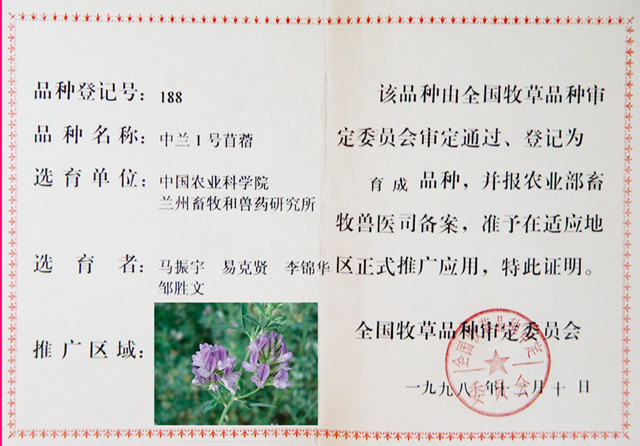 品种登记号: 188
品种名称: 中兰1号苜蓿
选育单位: 中国农业科学院
兰州畜牧和兽药研究所
选育者: 马振宇 易克贤 李锦华
邹胜文
推广区域:
该品种由全国牧草品种审
定委员会审定通过、登记为
育成 品种，并报农业部畜
牧兽医司备案，准予在适应地
区正式推广应用，特此证明。
全国牧草品种审定委员会
一九九八年十二月十日
委员会